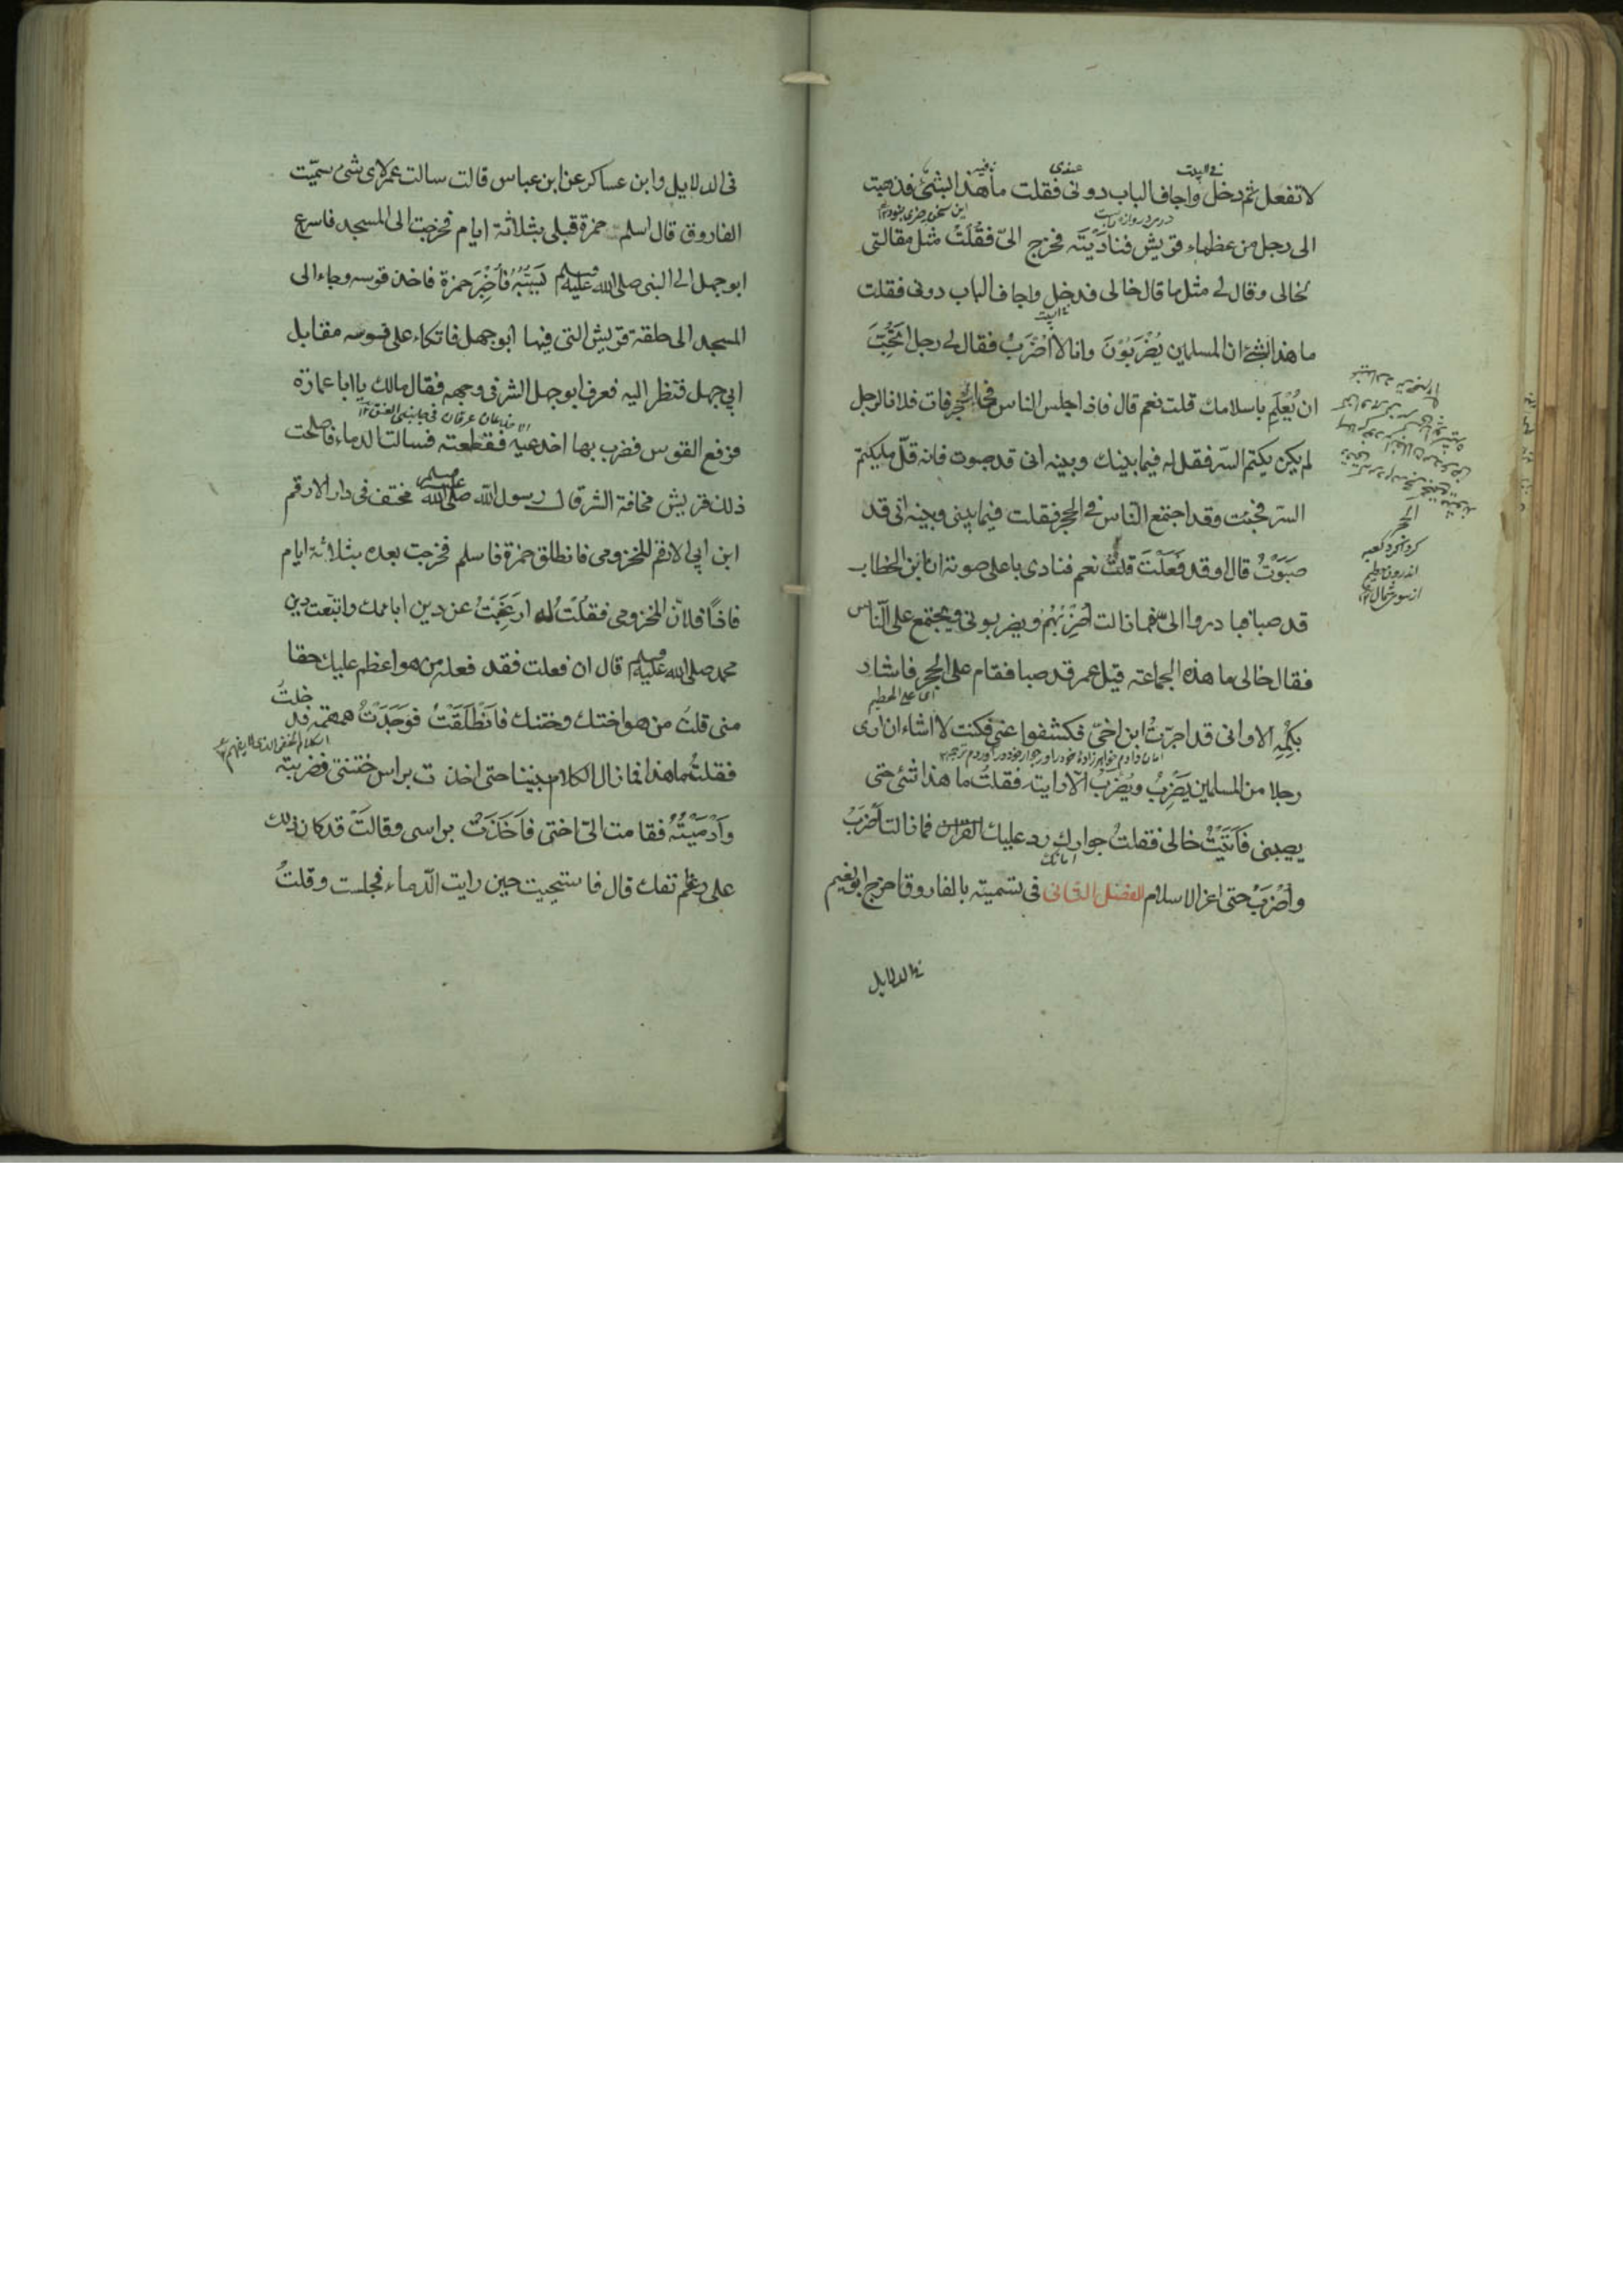 لا تفعل ثم دخل واجاف الباب دونى فقلت ما هذا بشئ فذهبت
الى رجل من عظماء قريش فناديته فخرج الىّ فقلت مثل مقالتى
لخالى وقال لے مثل ما قال خالى فدخل واجاف الباب دونى فقلت
ما هذا بشئ ان المسلمين يُضْرَبُوْنَ وانا لا اُضْرَبُ فقال لے رجل اتحب
ان يُعْلَم باسلامك قلت نعم قال فاذا جلس الناس فى الحجر فات فلانا لرجل
لم يكن يكتم السّر فقل له فيما بينك وبينه انى قد صبوت فانه قلّ ما يكتم
السّر فجئت وقد اجتمع الناس فے الحجر فقلت فيما بينى وبينه انى قد
صَبَوْتُ قال او قد فَعَلْتَ قلتُ نعم فنادى باعلى صوته ان ابن الخطاب
قد صبا فبادروا الىّ فما زالت اَضْرِبُهُمْ ويضربونى ويجتمع علىّ الناس
فقال خالى ما هذه الجماعة قيل عمر قد صبا فقام على الحجر فاشار
اى على الحطيم
بكمه الا وانى قد اجرت ابن اختى فكشفوا عنى فكنت لا اشاء ان ارى
رجلا من المسلمين يَضْرِبُ ويُضْرَبُ الّا رايته فقلتُ ما هذا شئى حتى
يصيبنى فَاَتَيْتُ خالى فقلتُ جوارك رد عليك فما زالت اَضْرِبُ
واُضْرَبُ حتى اعز الاسلام الفصل الثانى فى تسميته بالفاروق اخرج ابو نعيم
فے الدلايل
الحجر
كرد اكرد كعبه
اندرون حطيم
از سوى شمال
فى الدلايل وابن عساكر عن ابن عباس قالت سالت عمر لاى شئ سمّيت
الفاروق قال اسلم حمزة قبلى بثلاثة ايام فخرجت الى المسجد فاسرع
ابو جهل الے النبى صلى الله عليه وسلم يَسُبُّهُ فاُخْبِرَ حمزة فاخذ قوسه وجاء الى
المسجد الى حلقة قريش التى فيها ابو جهل فاتكاء على قوسه مقابل
ابى جهل فنظر اليه فعرف ابو جهل الشر فى وجهه فقال مالك يا ابا عمارة
الاخدعان عرقان فى جانبى العنق ١٢
فرفع القوس فضرب بها اخدعيه فقطعته فسالت الدماء فاصلحت
ذلك قريش مخافة الشر قال رسول الله صلى الله عليه وسلم مختف فى دار الارقم
ابن ابى الارقم المخزومى فانطلق حمزة فاسلم فخرجت بعده بثلاثة ايام
فاذا فلان المخزومى فقلت له ارغبت عن دين ابائك واتبعت دين
محمد صلى الله عليه وسلم قال ان فعلت فقد فعله من هو اعظم عليك حقا
منى قلتُ من هو اختك وختنك فانْطَلَقْتُ فوَجَدْتُ همهمة فدخلتُ
الكلام الخفى الذى لا يفهم
فقلتُ ما هذا فما زال الكلام بيننا حتى اخذت براس ختنى فضربته
واَدْمَيْتُهُ فقامت الىّ اختى فاَخَذَتْ براسى وقالتْ قد كان ذلك
على رغم انفك قال فاستحييت حين رايت الدماء فجلست وقلتُ